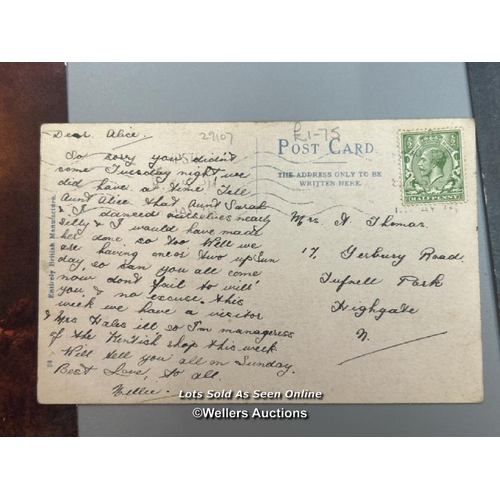 Dear Alice.
So sorry you didn't
come Tuesday night, we
did have a time Tell
Aunt Alice that Aunt Sarah
& I danced ourselves nearly
silly & I would have made
her done, so too. Well we
are having one or two up Sun
day, so can you all come
now don't fail to will
you & no excuse. this
week we have a visitor
& Mrs Hales ill so I'm manageress
of the Kentish shop this week
Will tell you all on Sunday.
Best Love, to all.
Nellie.
29107
£1-75
POST CARD.
THE ADDRESS ONLY TO BE
WRITTEN HERE.
HALFPENNY
Mrs A. Thomas.
17, Yerbury Road.
Tufnell Park
Highgate
N.
Entirely British Manufacture.
Lots Sold As Seen Online
©Wellers Auctions